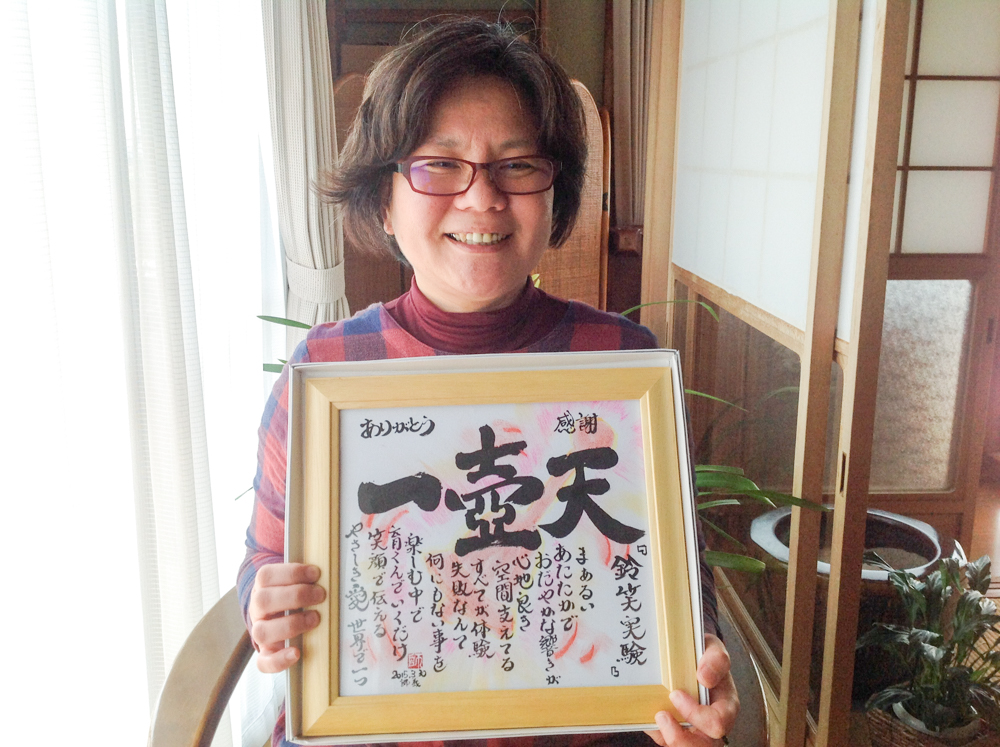 感謝
ありがとう
天壺一
『鈴笑実験』
まあるい
あたたかで
おだやかな響きが
心地良き
空間支えてる
すべてが体験
失敗なんて
何にもない事を
楽しむ中で
育くんでいくだけ
笑顔で伝える
やさしき愛 世界で一つ
2015.3.30